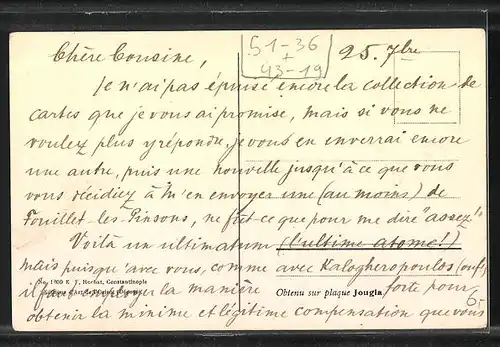 51-36
+
43-19
25. 7bre
Chère Cousine,
Je n'ai pas épuisé encore la collection de
cartes que je vous ai promise, mais si vous ne
voulez plus y répondre, je vous en enverrai encore
une autre, puis une nouvelle jusqu'à ce que vous
vous décidiez à m'en envoyer une (au moins) de
Fouillet-les-Pinsons, ne fût-ce que pour me dire "assez!"
Voilà un ultimatum (l'ultime atome!)
mais puisqu'avec vous, comme avec Kalogheropoulos (ouf!)
il faut employer la manière forte pour
obtenir la minime et légitime compensation que vous
Constantinople
Obtenu sur plaque Jougla